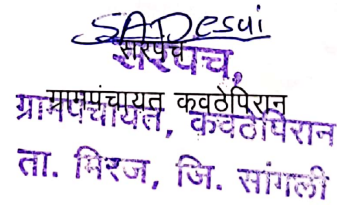 SADesai
सरपंच
सरपंच,
ग्रामपंचायत कवठेपिरान
ग्रामपंचायत, कवठेपिरान
ता. मिरज, जि. सांगली